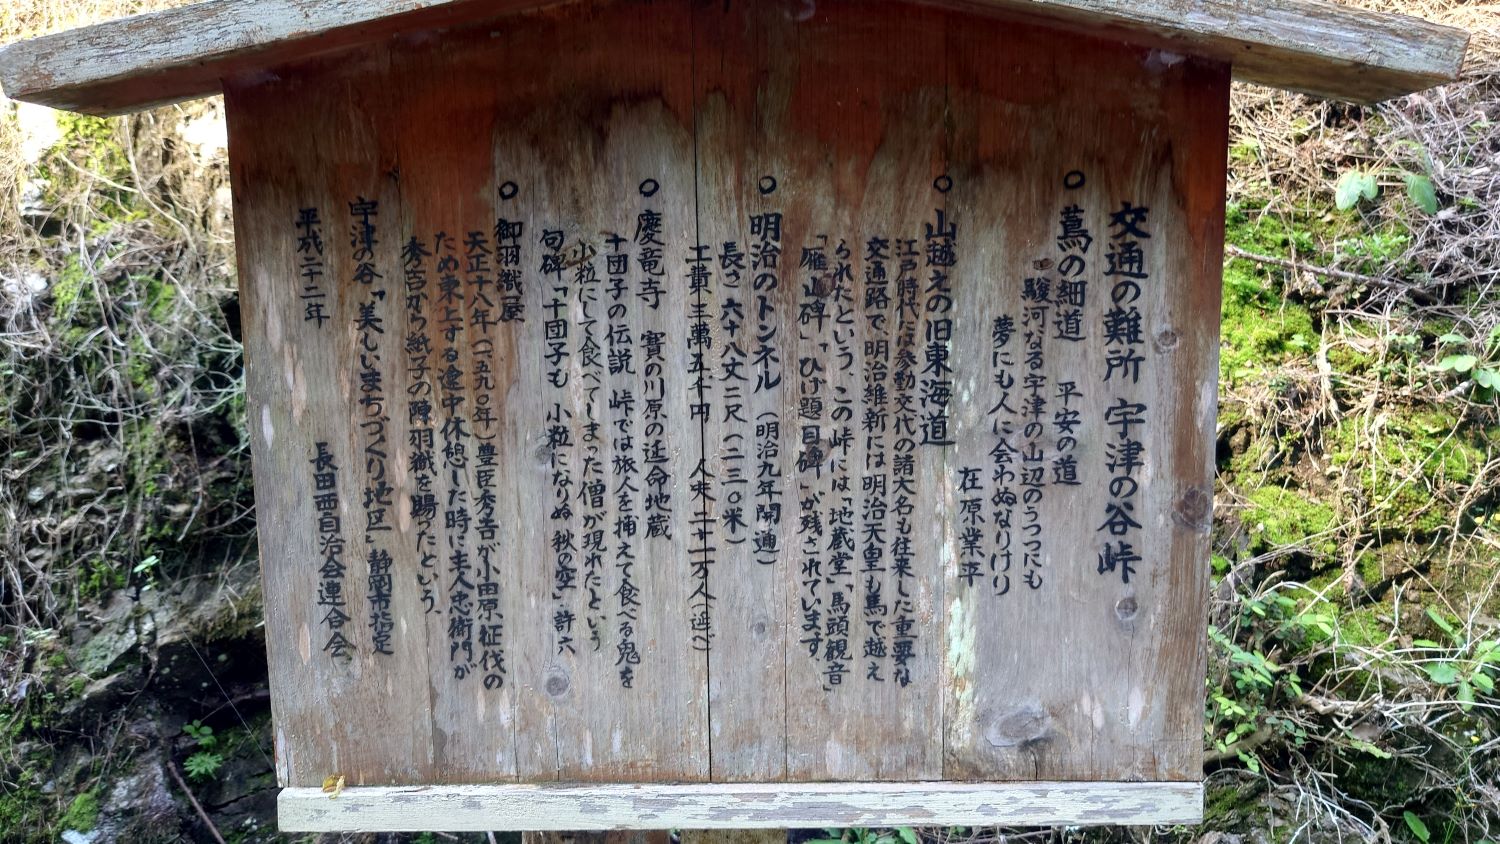 交通の難所 宇津の谷峠
○ 蔦の細道 平安の道
駿河なる宇津の山辺のうつつにも
夢にも人に会わぬなりけり
在原業平
○ 山越えの旧東海道
江戸時代には参勤交代の諸大名も往来した重要な
交通路で、明治維新には明治天皇も馬で越え
られたという。この峠には「地蔵堂」「馬頭観音」
「雁山碑」、「ひげ題目碑」が残されています。
○ 明治のトンネル（明治九年開通）
長さ 六十八丈二尺（二二〇米）
工費 三萬五千円 人夫 二十一万人（延べ）
○ 慶竜寺 賽の川原の延命地蔵
十団子の伝説 峠では旅人を捕えて食べる鬼を
小粒にして食べてしまった僧が現れたという
句碑「十団子も 小粒になりぬ 秋の空」許六
○ 御羽織屋
天正十八年（一五九〇年）豊臣秀吉が小田原征伐の
ため東上する途中休憩した時に主人忠衛門が
秀吉から紙子の陣羽織を賜ったという、
宇津の谷「美しいまちづくり地区」静岡市指定
平成二十二年 長田西自治会連合会